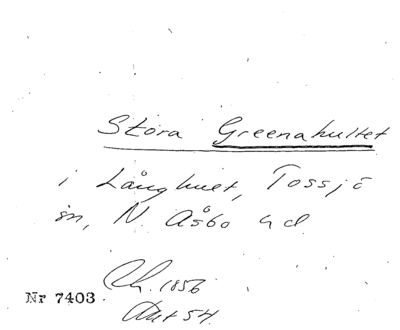 Stora Greenahultet
i Långhult, Tossjö
sn, N. Åsbo hd.
Ch. 1856
Nr 7403
Akt 54.